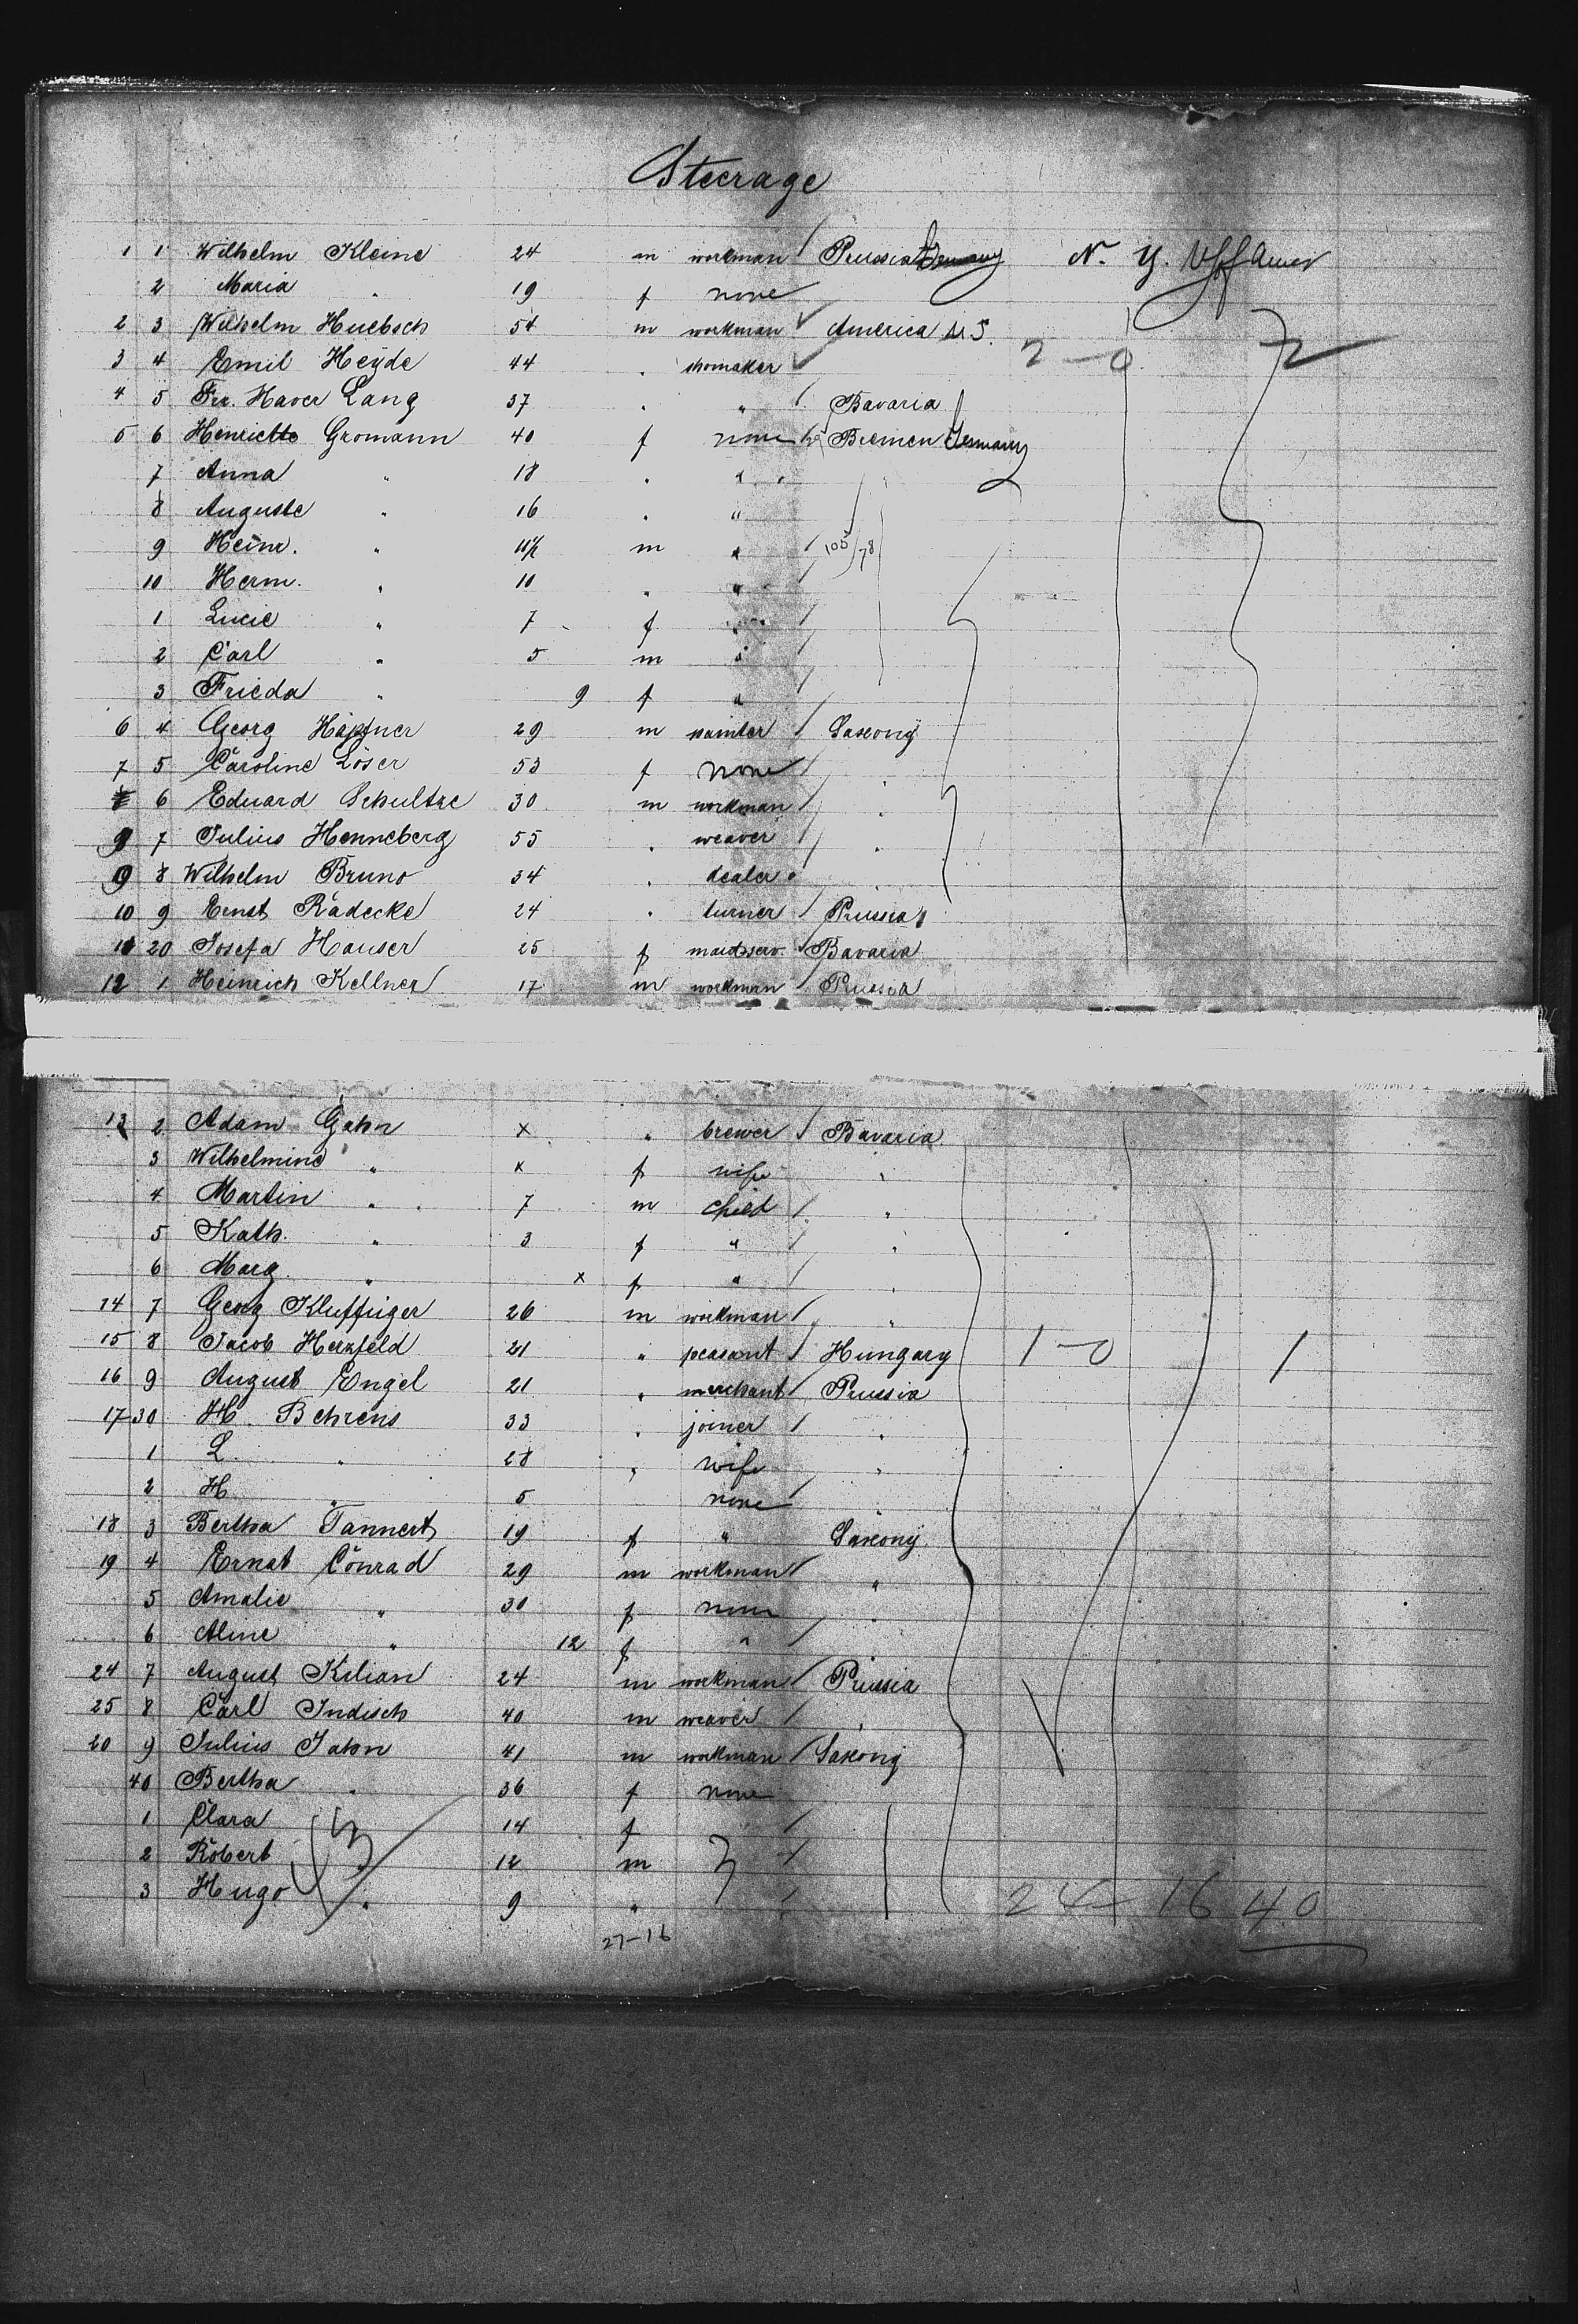 Steerage
1 1 Wilhelm Kleine 24 m workman Prussia Germany N. Y. U S of Amer
2 Maria " 19 f none
2 3 Wilhelm Huebsch 54 m workman America U.S.
3 4 Emil Heyde 44 " shomaker 2-0 2
4 5 Frz. Xaver Lang 37 " " Bavaria
5 6 Henriette Gromann 40 f none Bremen Germany
7 Anna " 18 " "
8 Auguste " 16 " "
9 Heinr. " 11½ m " 105/78
10 Herm. " 10 " "
1 Lucie " 7 f "
2 Carl " 5 m "
3 Frieda " 9 f "
6 4 Georg Häpfner 29 m painter Saxony
7 5 Caroline Löser 53 f none "
6 Eduard Schultze 30 m workman "
9 7 Julius Henneberg 55 " weaver "
9 8 Wilhelm Bruno 34 " dealer "
10 9 Ernst Radecke 24 " turner Prussia
11 20 Josefa Hauser 25 f maidserv. Bavaria
12 1 Heinrich Kellner 17 m workman Prussia
13 2 Adam Gahn x " brewer Bavaria
3 Wilhelmine " x f wife "
4 Martin " 7 m child "
5 Kath. " 3 f " "
6 Marg. " x f " "
14 7 Georg Kluffinger 26 m workman "
15 8 Jacob Herzfeld 21 " peasant Hungary 1-0 1
16 9 August Engel 21 " merchant Prussia
17 30 H. Behrens 33 " joiner "
1 L. " 28 " wife "
2 H. " 5 none
18 3 Bertha Tannert 19 f " Saxony
19 4 Ernst Conrad 29 m workman "
5 Amalie " 30 f none "
6 Aline " 12 f "
24 7 August Kilian 24 m workman Prussia
25 8 Carl Indisch 40 m weaver "
20 9 Julius Jahn 41 m workman Saxony
40 Bertha " 36 f none
1 Clara 14 f
2 Robert 12 m
3 Hugo " 9 "
24-16 40
27-16